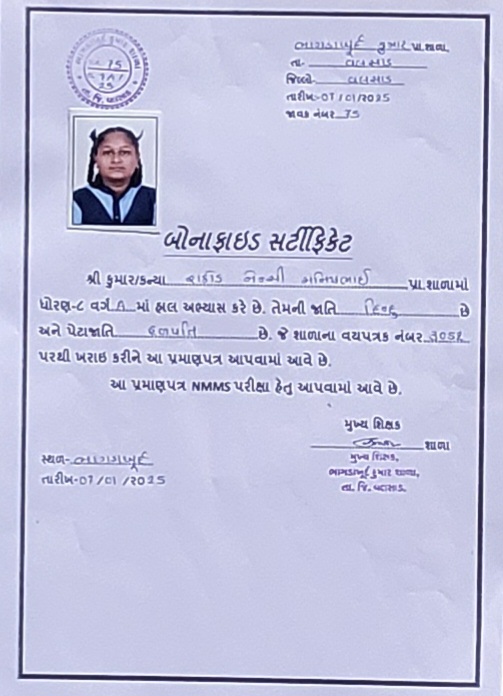 ભાગડાખુર્દ કુમાર પ્રા.શાળા,
તા- વલસાડ
જિલ્લો- વલસાડ
તારીખ-07/01/2025
જાવક નંબર 75
બોનાફાઇડ સર્ટીફિકેટ
શ્રી કુમાર/કન્યા રાઠોડ નેન્સી પ્રા.શાળામાં
ધોરણ-૮ વર્ગ A માં હાલ અભ્યાસ કરે છે. તેમની જાતિ હિન્દુ છે
અને પેટાજાતિ હળપતિ છે. જે શાળાના વયપત્રક નંબર
પરથી ખરાઇ કરીને આ પ્રમાણપત્ર આપવામાં આવે છે.
આ પ્રમાણપત્ર NMMS પરીક્ષા હેતુ આપવામાં આવે છે.
મુખ્ય શિક્ષક
શાળા
સ્થળ- ભાગડાખુર્દ
તારીખ-07/01/2025
મુખ્ય શિક્ષક,
ભાગડાખુર્દ કુમાર શાળા,
તા. જિ. વલસાડ.